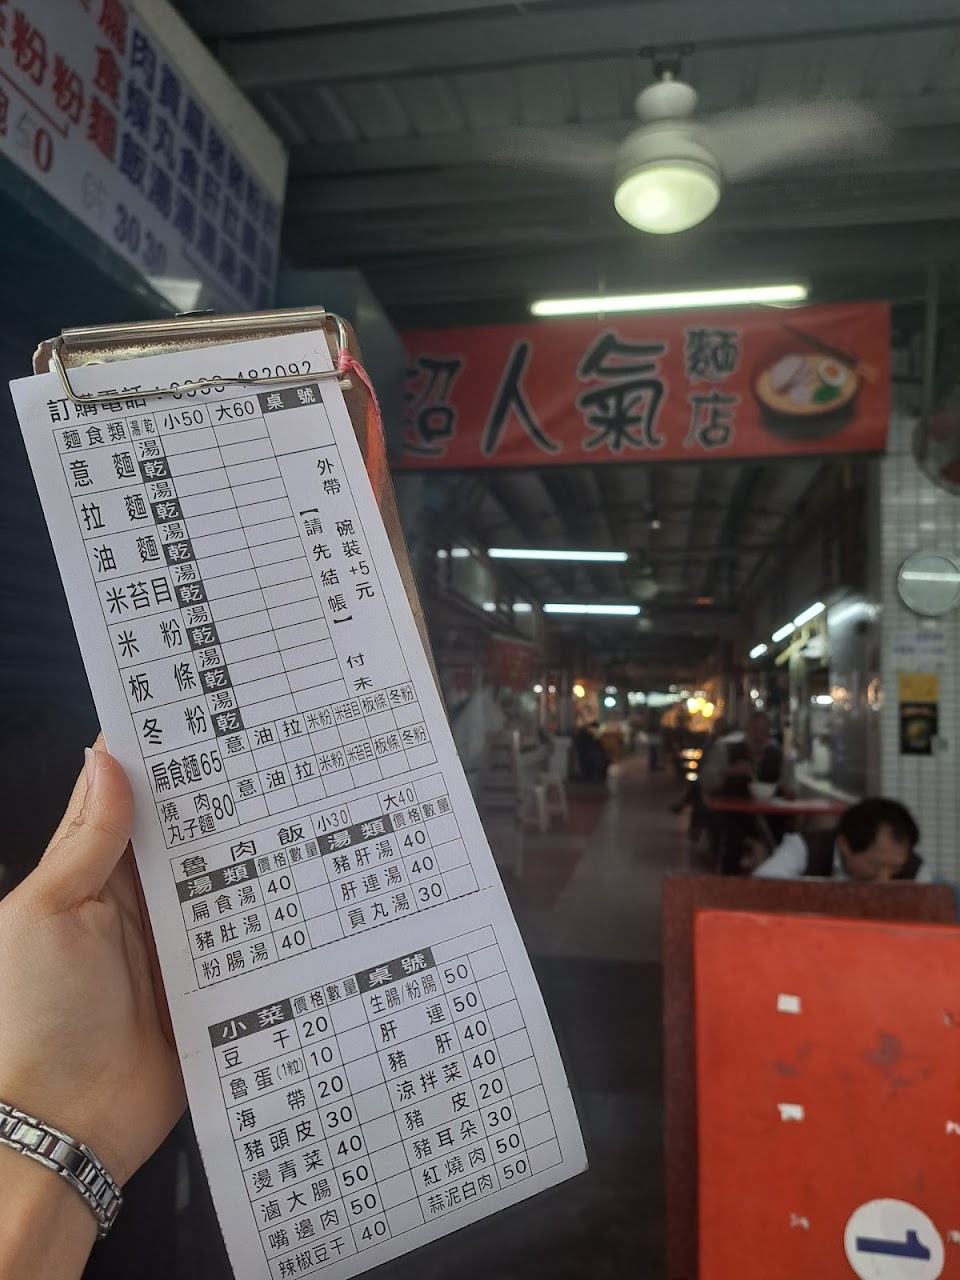 扁食麵
肉燥飯
30 30
50
超人氣麵店
訂購電話：
麵食類 湯乾 小50 大60 桌號
意麵 湯 乾
拉麵 湯 乾
油麵 湯 乾
米苔目 湯 乾
米粉 湯 乾
板條 湯 乾
冬粉 湯 乾
外帶 碗裝+5元
【請先結帳】
付 未
扁食麵65 意 油 拉 米粉 米苔目 板條 冬粉
燒肉丸子麵80 意 油 拉 米粉 米苔目 板條 冬粉
魯肉飯 小30 大40
湯類 價格 數量 湯類 價格 數量
扁食湯 40 豬肝湯 40
豬肚湯 40 肝連湯 40
粉腸湯 40 貢丸湯 30
小菜 價格 數量 桌號
豆干 20 生腸/粉腸 50
魯蛋(1粒) 10 肝連 50
海帶 20 豬肝 40
豬頭皮 30 涼拌菜 40
燙青菜 40 豬皮 20
滷大腸 50 豬耳朵 30
嘴邊肉 50 紅燒肉 50
辣椒豆干 40 蒜泥白肉 50
1